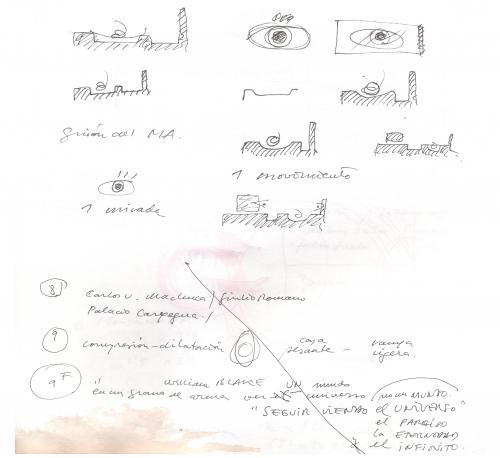 guión del MA.
1 movimiento
1 mirada
8
Carlos V. Machuca / Giulio Romano
Palacio /
9
compresión - dilatación
caja
-
ligera.
9F
" William BLAKE UN mundo
en un grano de arena ver universo
"SEGUIR VIENDO
MUNDO.
el UNIVERSO"
el PARAÍSO
la ETERNIDAD
el INFINITO.